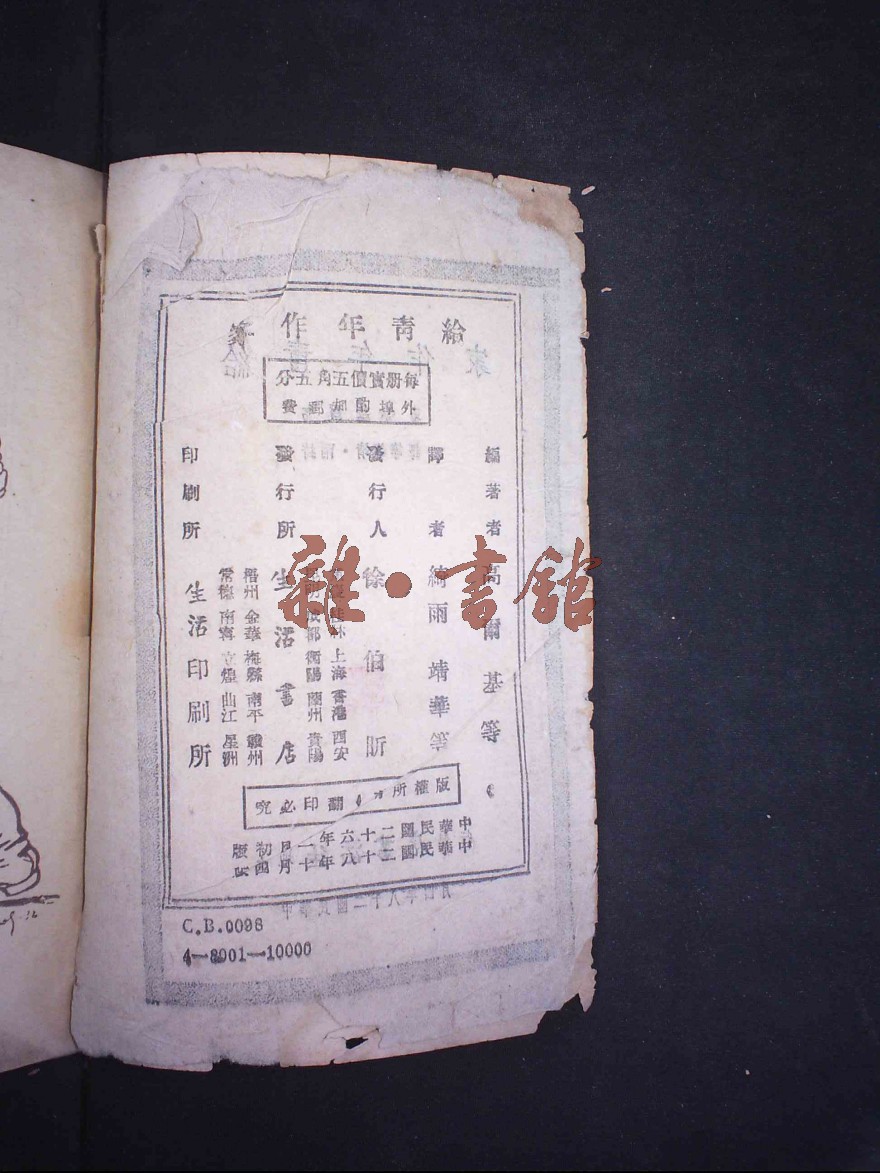 給青年作家
每册實價五角五分
外埠酌加郵費
編著者 高爾基等
譯者 綺雨 靖華等
發行人 徐伯昕
桂林 上海 香港 西安
昆明 成都 衡陽 蘭州 貴陽
發行所 生活書店
梧州 金華 梅縣 南平 贛州
常德 南寧 立煌 曲江 星洲
印刷所 生活印刷所
版權所有 翻印必究
中華民國二十六年一月初版
中華民國二十八年十月四版
C.B.0098
4—8001—10000
雜·書館